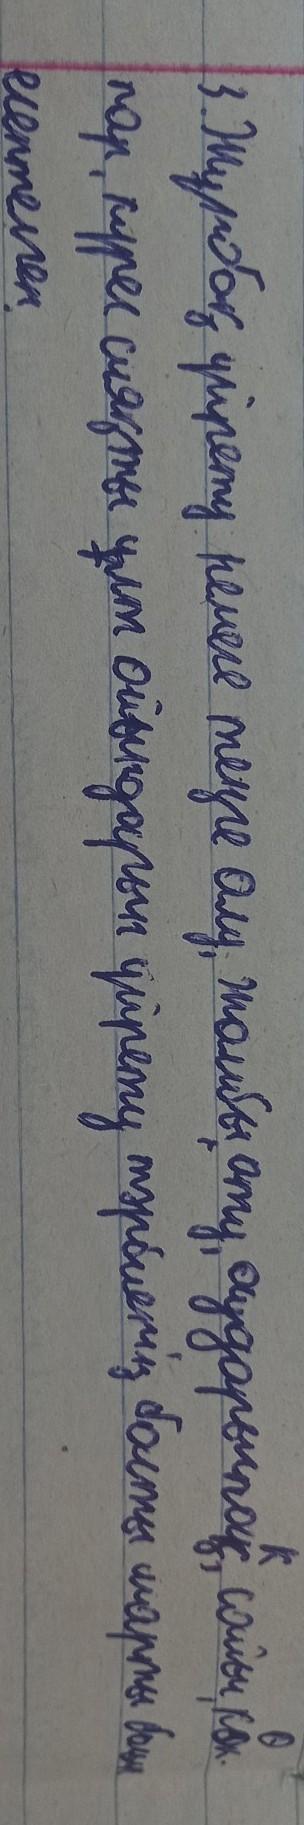 3. Жұмбақ үйрету немесе теңге алу, жамбы ату, аударыспақ, сайыс, көк-
пар, күрес сияқты ұлт ойындарын үйрету тәрбиенің басты шарты боп
есептелген.